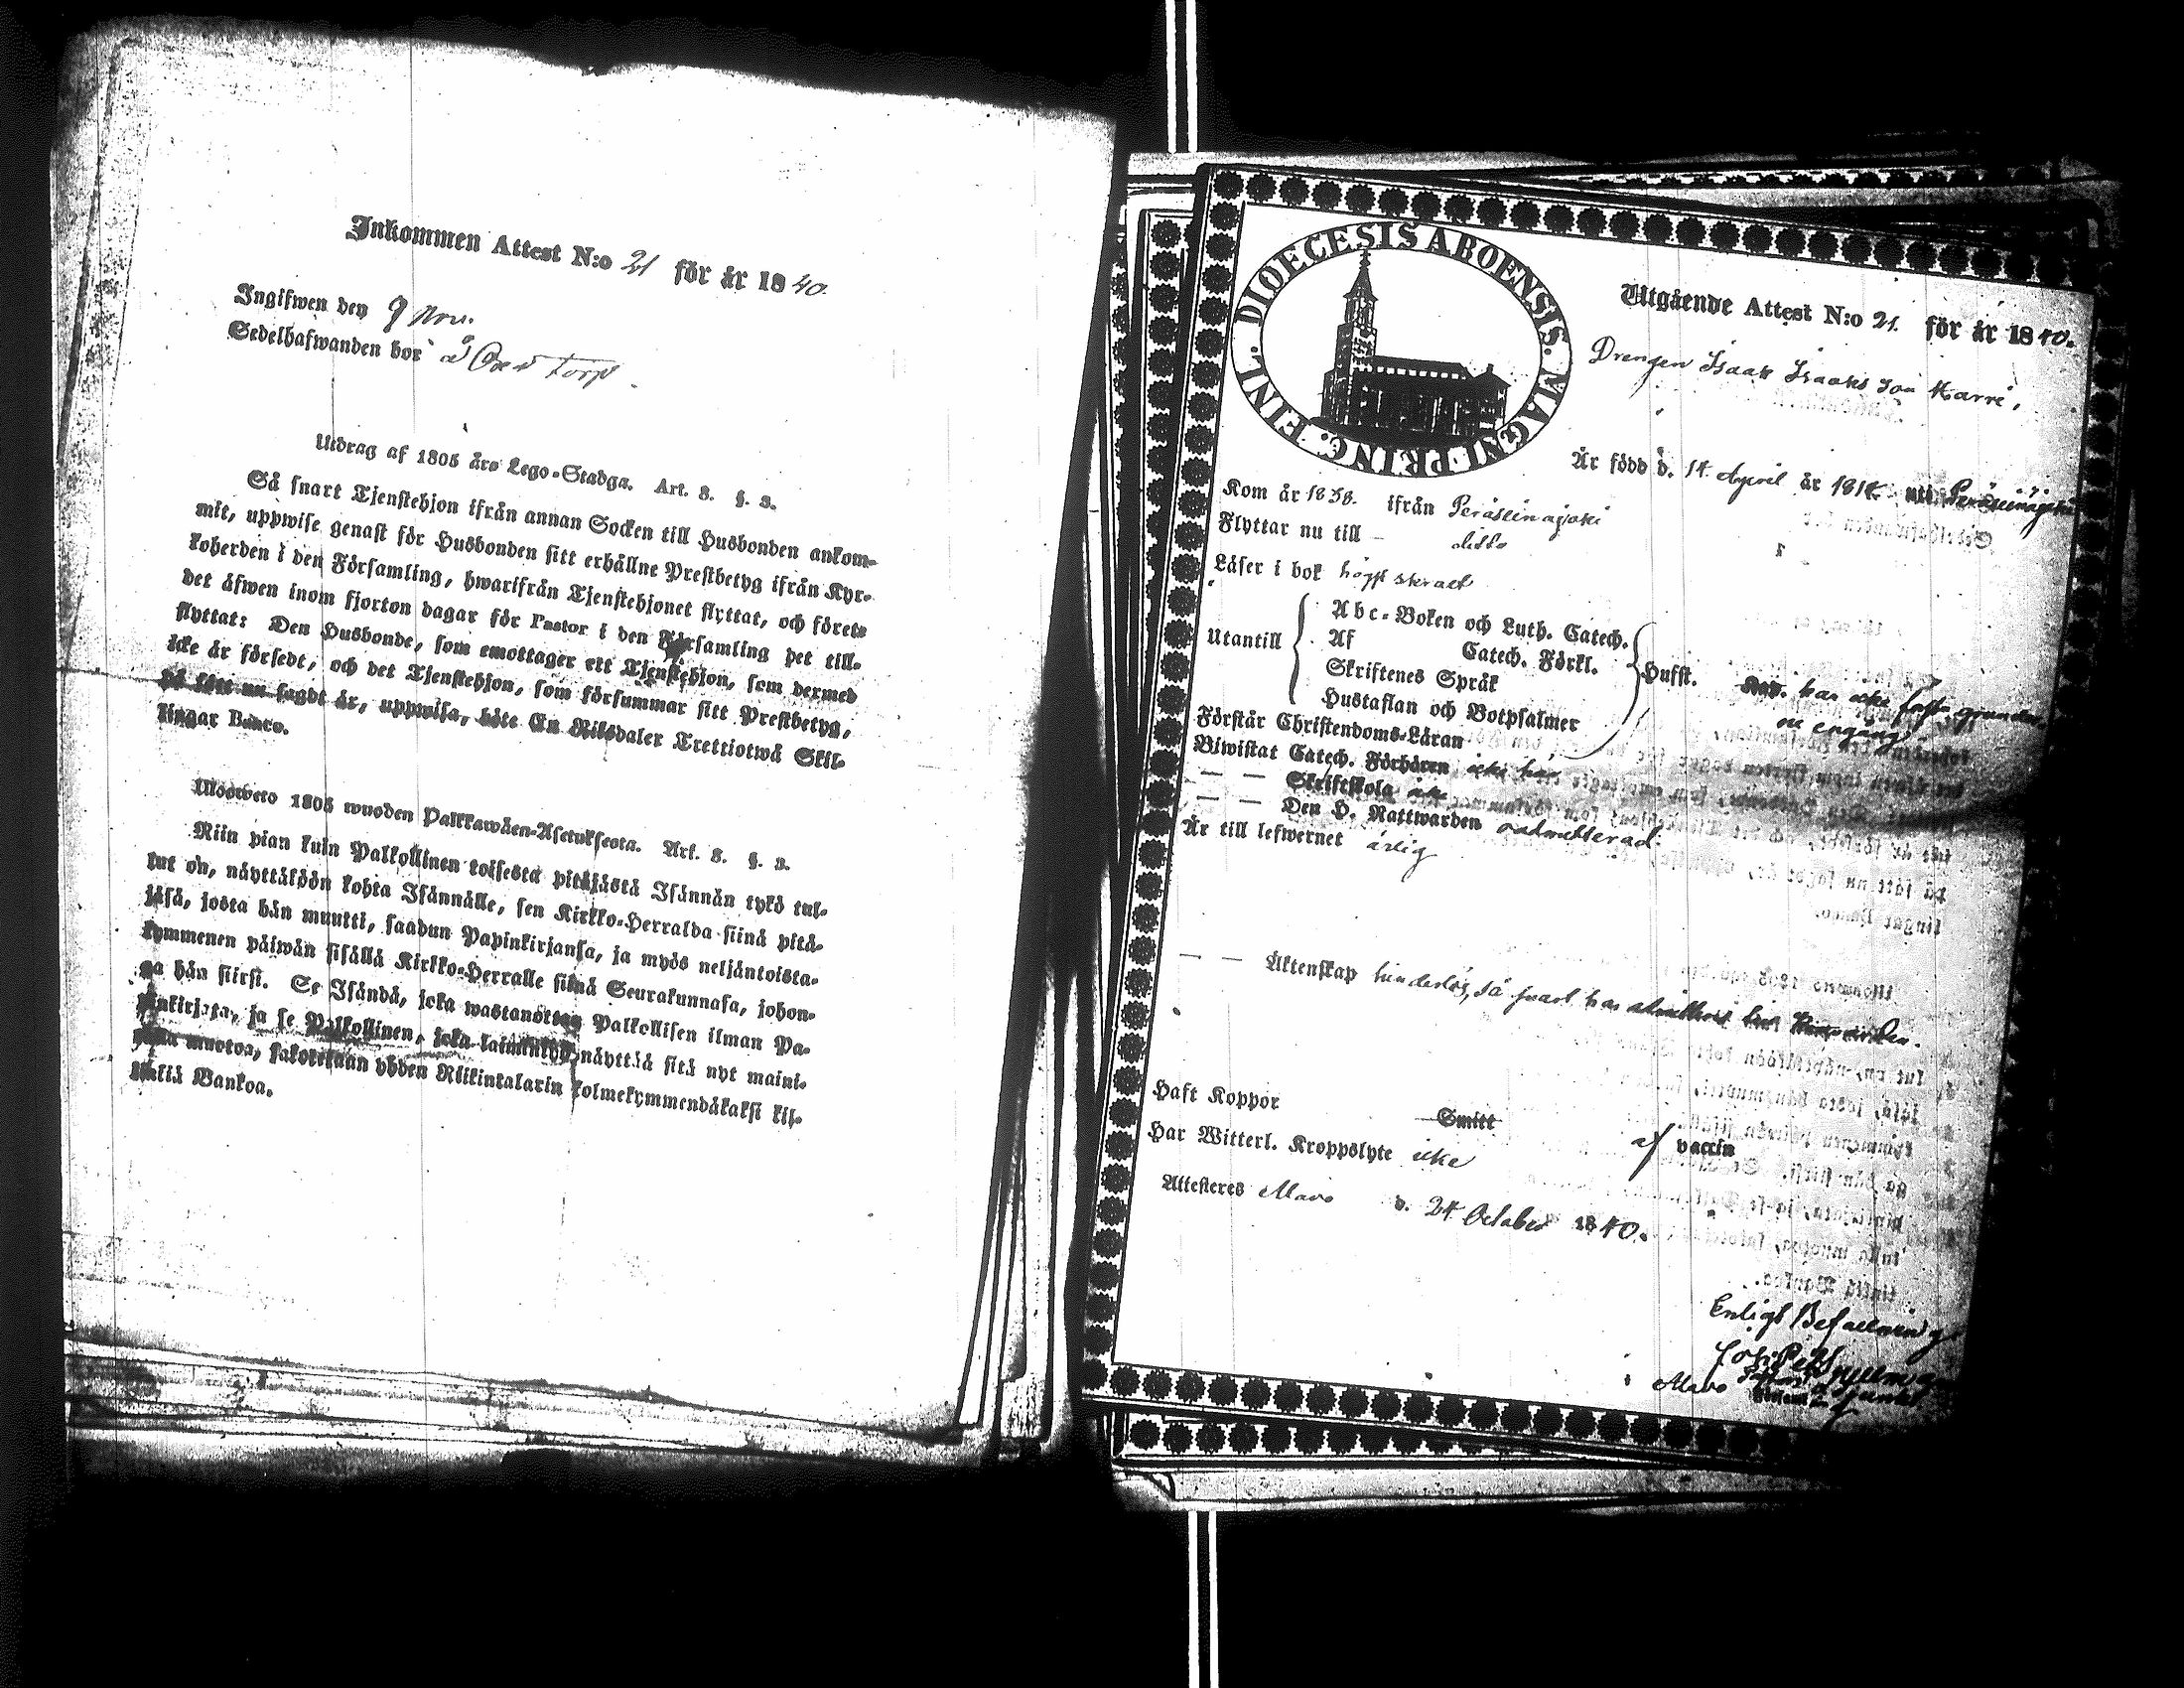 Inkommen Attest N:o 21 för år 1840.
Ingifwen den 9 Nov.
Sedelhafwanden bor å torp.
Utdrag af 1805 års Lego-Stadga. Art. 3. §. 3.
Så snart Tjenstehjon ifrån annan Socken till Husbonden ankom-
mit, uppwise genast för Husbonden sitt erhållne Prestbetyg ifrån Kyr-
koherden i den Församling, hwarifrån Tjenstehjonet flyttat, och förete
det äfwen inom fjorton dagar för Pastor i den Församling det till-
flyttat: Den Husbonde, som emottager ett Tjenstehjon, som dermed
icke är försedt, och det Tjenstehjon, som försummar sitt Prestbetyg,
på sätt nu sagdt är, uppwisa, böte En Riksdaler Trettiotwå Skil-
lingar Banco.
Ulosweto 1805 wuoden Palkkawäen-Asetuksesta. Art. 3. §. 3.
Niin pian kuin Palkollinen toisesta pitäjästä Isännän tykö tul-
lut on, näyttäköön kohta Isännälle, sen Kirkko-Herralda siinä pitä-
jäsä, josta hän muutti, saadun Papinkirjansa, ja myös neljäntoista-
kymmenen päiwän sisällä Kirkko-Herralle siinä Seurakunnasa, johon-
ga hän siirsi. Se Isändä, joka wastanottaa Palkollisen ilman Pa-
pinkirjata, ja se Palkollinen, joka laiminlyö näyttää sitä nyt maini-
tulla muotoa, sakoitetaan yhden Riikintalarin kolmekymmendäkaksi kil-
lingiä Bankoa.
DIOECESIS ABOENSIS. MAGNI PRINC. FINL.
Utgående Attest N:o 21. för år 1840.
Drengen Isaak Isaaks son Karri,
Är född d. 14 April år 181 uti Peräseinäjoki
Kom år 1838. ifrån Peräseinäjoki
Flyttar nu till – ditto
Läser i bok högst skralt
Utantill
Abc-Boken och Luth. Catech.
Af Catech. Förkl.
Skriftenes Språk
Hustaflan och Botpsalmer
Hufst.
har icke fatta grunden
en engång.
Förstår Christendoms-Läran
Biwistat Catech. Förhören icke här
— — Skriftskola icke
— — Den H. Nattwarden oadmitterad.
Är till lefwernet ärlig
— — Äktenskap hinderlös, så snart han
Haft Koppor Smitt af vaccin
Har Witterl. Kroppslyte icke
Attesteres Alavo d. 24 October 1840.
Enligt Befallning
Alavo